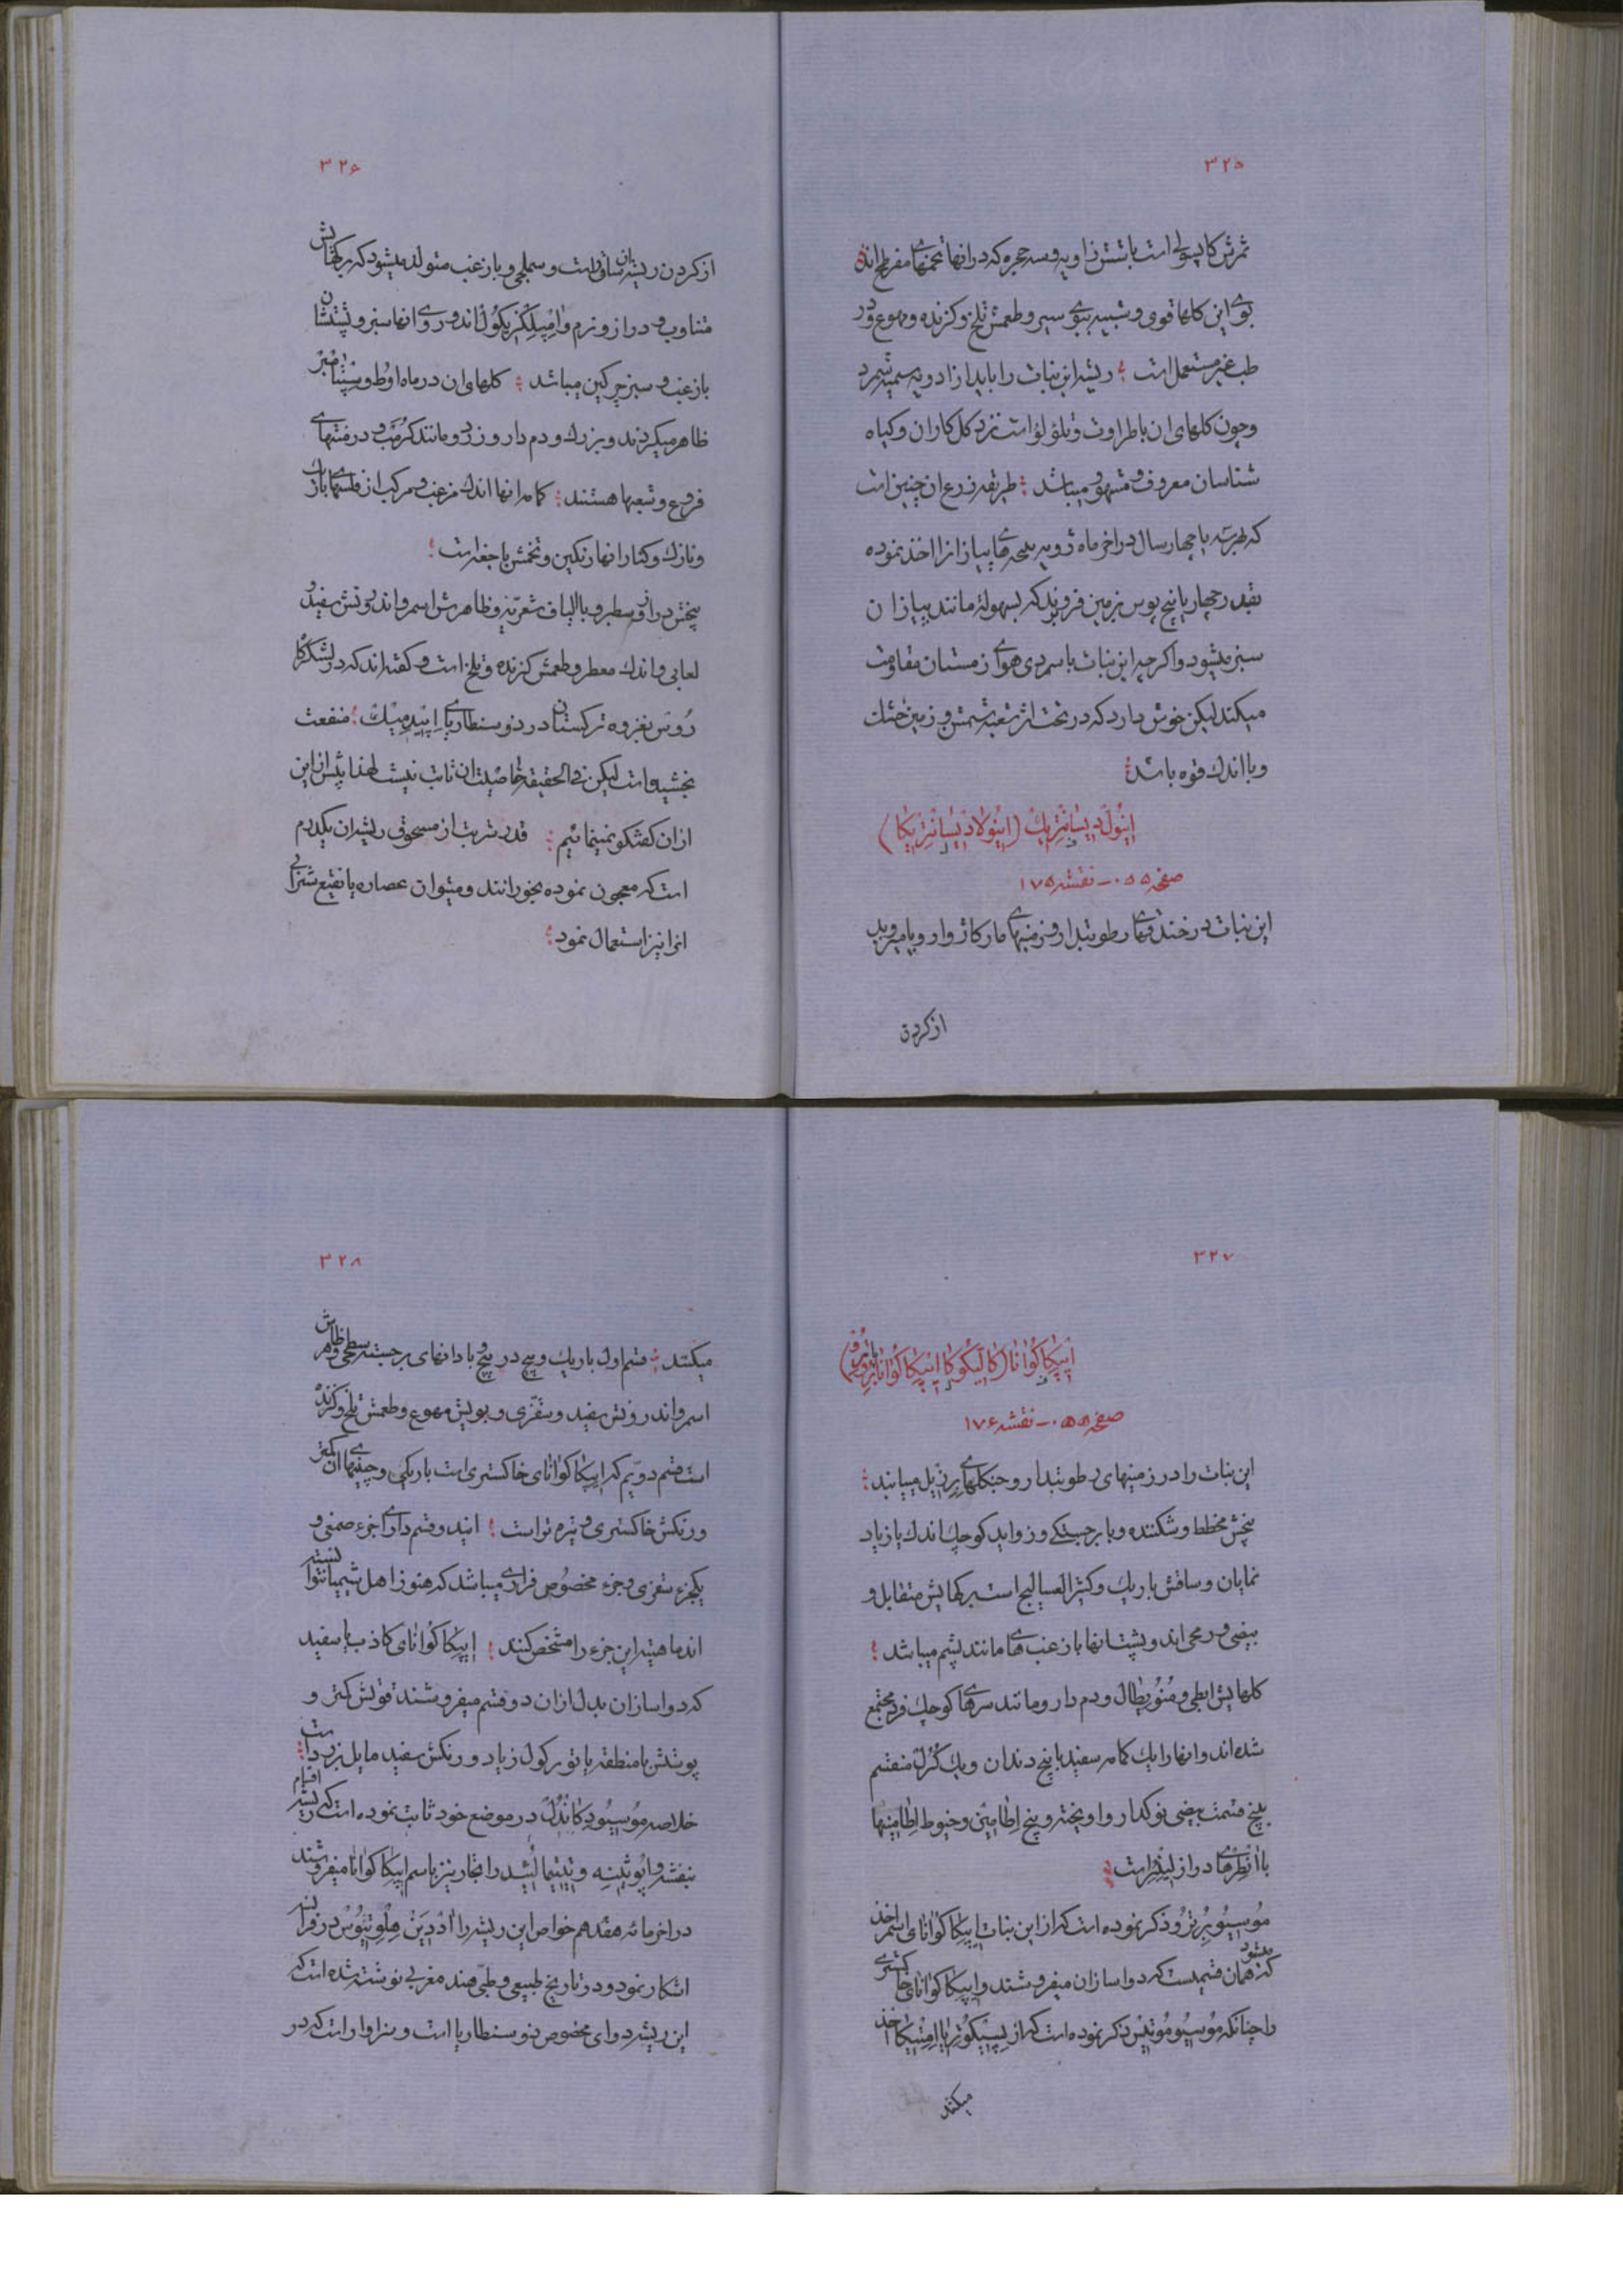 ۳۲۵
ثمرش کاپسولی است با شش زاویه و سه حجره که در آنها تخمهای مفرطح اند
بوی این کلها قوی و شبیه ببوی سیر و طعمش تلخ و کزنده و مهوع و در
طب غیر مستعمل است ؛ ریشه این نبات را باید از ادویه سمیه شمرد
و چون کلهای ان با طراوت و تلؤلؤ است نزد کل کاران و کیاه
شناسان معروف و مشهور میباشد ؛ طریقه زرع ان چنین است
که هر سه یا چهار سال در اخر ماه ژویه پیاز انرا اخذ نموده
بقدر چهار یا پنج پوس بزمین فرو برند که بسهولة مانند پیاز ان
سبز میشود و اکر چه این نبات با سردی هوای زمستان مقاومت
میکند لیکن خوش دارد که در تحت اشعه شمس و زمین خشک
و با اندک قوه باشد ؛
اینول دیسانتریک (اینولا دیسانتریکا)
صفحه ۵۵۰ – نقشه ۱۷۵
این نبات در خندقهای رطوبتدار و زمینهای مارکاژوار و یا میروید
از کردن
۳۲۶
از کردن ریشه ان ساقی است و سملجی و با زغب متولد میشود که برکهایش
متناوب و دراز و نرم و امپلکزیکول اند و روی انها سبز و پشتشان
با زغب و سبز چرکین میباشد ؛ کلهای ان در ماه اوط و سپتامبر
ظاهر میکردند و بزرک و دم دار و زرد و مانند کرمب و در منتهای
فروع و شعبها هستند ؛ کاسه انها اندک مزغب و مرکب از فلسهای باریک
و نازک و کنار انها رنکین و تخمش با جغه است ؛
بیخش دراز و سطبر و با الیاف شعریه و ظاهرش اسمر و اندرونش سفید و
لعابی و اندک معطر و طعمش کزنده و تلخ است و کفته اند که در لشکرکاه
روس بغزوه ترکستان در دوسنطاریای اپیدمیک ؛ منفعت
بخشیده است لیکن فی الحقیقة خاصیت ان ثابت نیست لهذا پیش از این
از ان کفتکو نمینمائیم ؛ قدر شربت از مسحوق ریشه ان یکدرم
است که معجون نموده بخورانند و میتوان عصاره یا نقیع شرابی
انرا نیز استعمال نمود ؛
۳۲۷
اپیکاکوانا (کالیکوکا اپیکاکوانا بروترو)
صفحه ۵۵۸ – نقشه ۱۷۶
این نبات را در زمینهای رطوبتدار و جنکلهای برزیل مییابند ؛
بیخش مخطط و شکننده و با برجستکی و زواید کوچک اندک یا زیاد
نمایان و ساقش باریک و کثیر العسالیج است برکهایش متقابل و
بیضی و رمحی اند و پشت انها با زغب های مانند پشم میباشد ؛
کلهایش ابطی و منوپطال و دم دار و مانند سرهای کوچک فرد مجتمع
شده اند و انها را یک کاسه سفید با پنج دندان و یک کرل منقسم
بپنج قسمت بیضی نوکدار و اویخته و پنج اطامین و خیوط اطامینها
با انطرهای دراز لیذر است ؛
موسیو بروترو ذکر نموده است که از این نبات اپیکاکوانای اسمر اخذ میشود
که همان قسمیست که دواسازان میفروشند و اپیکاکوانای خاکستری
را چنانکه موسیو موتیس ذکر نموده است که از پسیکوتریا امتیکا اخذ
میکنند
۳۲۸
میکنند ؛ قسم اول باریک و پیچ در پیچ و با دانهای برجسته سطحی و ظاهرش
اسمر و اندرونش سفید و سقزی و بویش مهوع و طعمش تلخ و کزنده
است قسم دویم که اپیکاکوانای خاکستری است باریکی و چینهای ان کمتر
و رنکش خاکستری و تیره تر است ؛ ایندو قسم دارای جزء صمغی و
یکجزء سقزی و جزء مخصوص فراری میباشد که هنوز اهل شیمی نتوانسته
اند ماهیته این جزء را مشخص کنند ؛ اپیکاکوانای کاذب یا سفید
که دواسازان بدل از ان دو قسم میفروشند قوتش کمتر و
پوستش با منطقه یا توبرکول زیاد و رنکش سفید مایل بزردی است ؛
خلاصه موسیو دکاندل در موضع خود ثابت نموده است که اقسام ریشه
بنفشه و ایوئینه و تیتیمالئید را تجار نیز باسم اپیکاکوانا میفروشند
در اخر مائه هفدهم خواص این ریشه را ادریین هلوتیوس در فرانسه
اشکار نمود و در تاریخ طبیعی و طبی هند مغربی نوشته شده است که
این ریشه دوای مخصوص دوسنطاریا است و سزاوار است که در